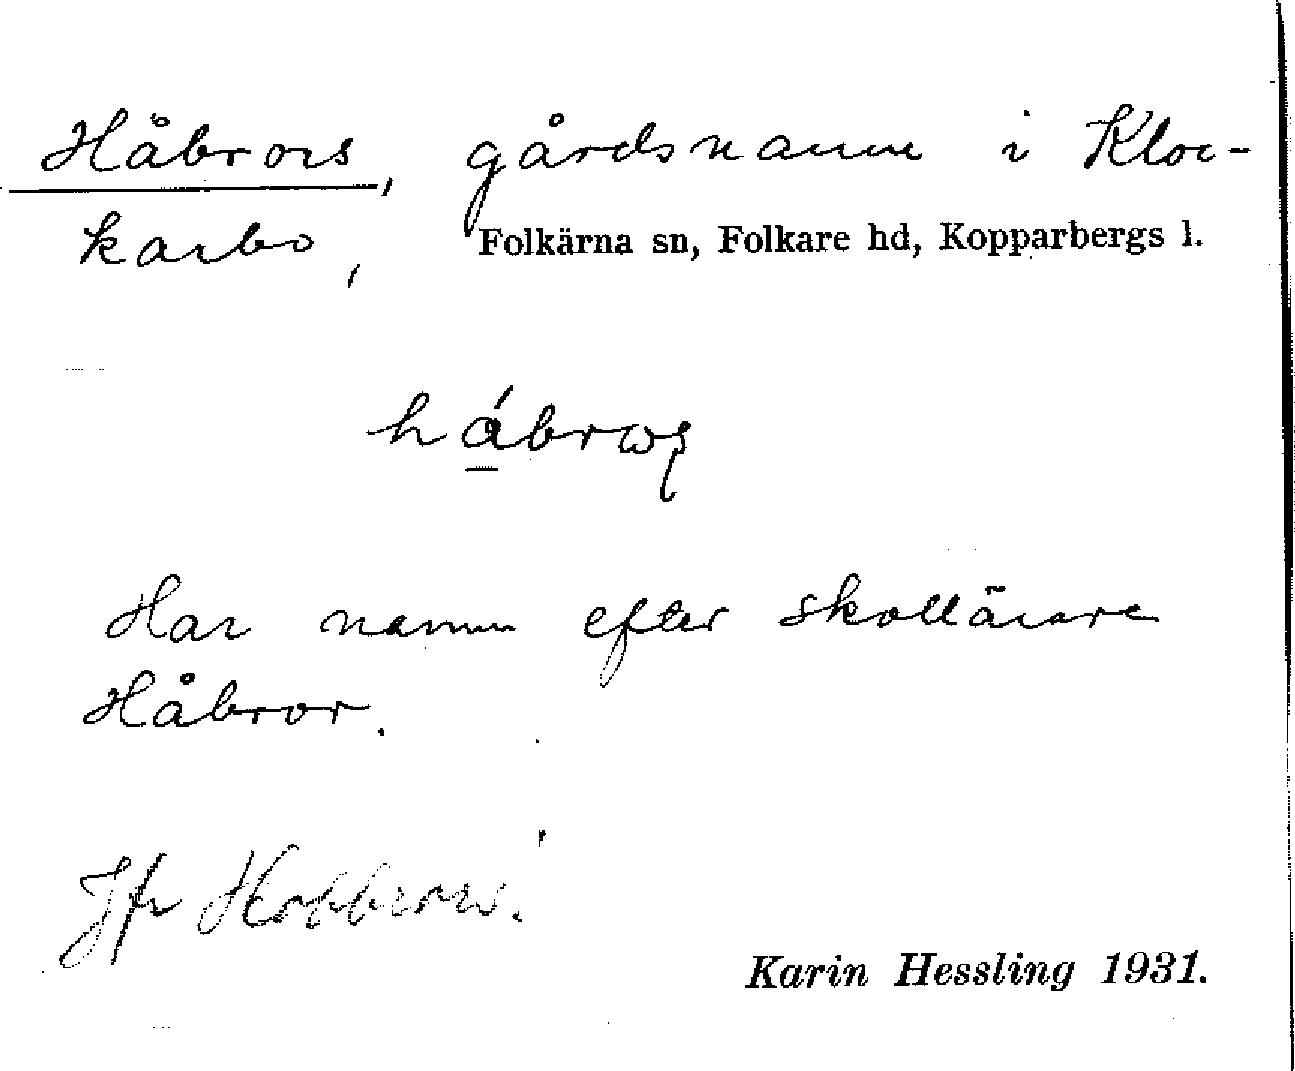 Håbrors, gårdsnamn i Kloc-
karbo, Folkärna sn, Folkare hd, Kopparbergs l.
Har namn efter skollärare
Håbror.
Jfr
Karin Hessling 1931.